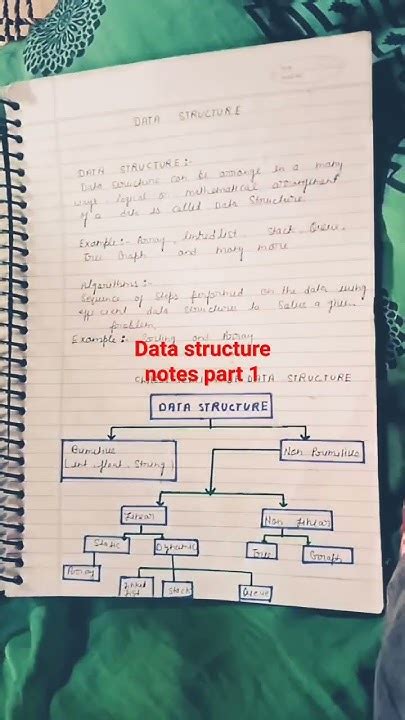 DATA STRUCTURE
DATA STRUCTURE:-
Data structure can be arrange in a many
ways, logical or mathematical arrangement
of a data is called Data Structure.
Example:- Array, linked list, Stack, Queue,
Tree Graph and many more
Algorithms:-
Sequence of steps performed on the data using
efficient data structure to Solve a given
problem.
Example: Sorting an Array
Data structure
notes part 1
DATA STRUCTURE
DATA STRUCTURE
(int, float, String)
Linear
Non Linear
Static
Dynamic
Tree
Graph
Array
Linked
List
Stack
Queue